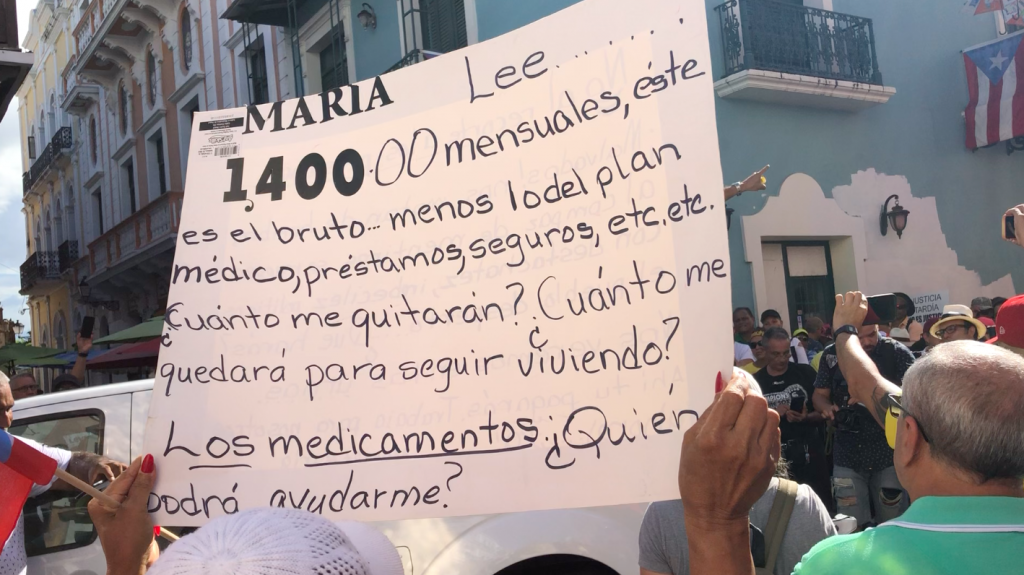 Lee......
MARIA
1,400.00 mensuales, éste
es el bruto... menos lo del plan
médico, préstamos, seguros, etc. etc.
¿Cuánto me quitarán? ¿Cuánto me
quedará para seguir viviendo?
Los medicamentos ¿Quién
podrá ayudarme?
JUSTICIA
TARDÍA